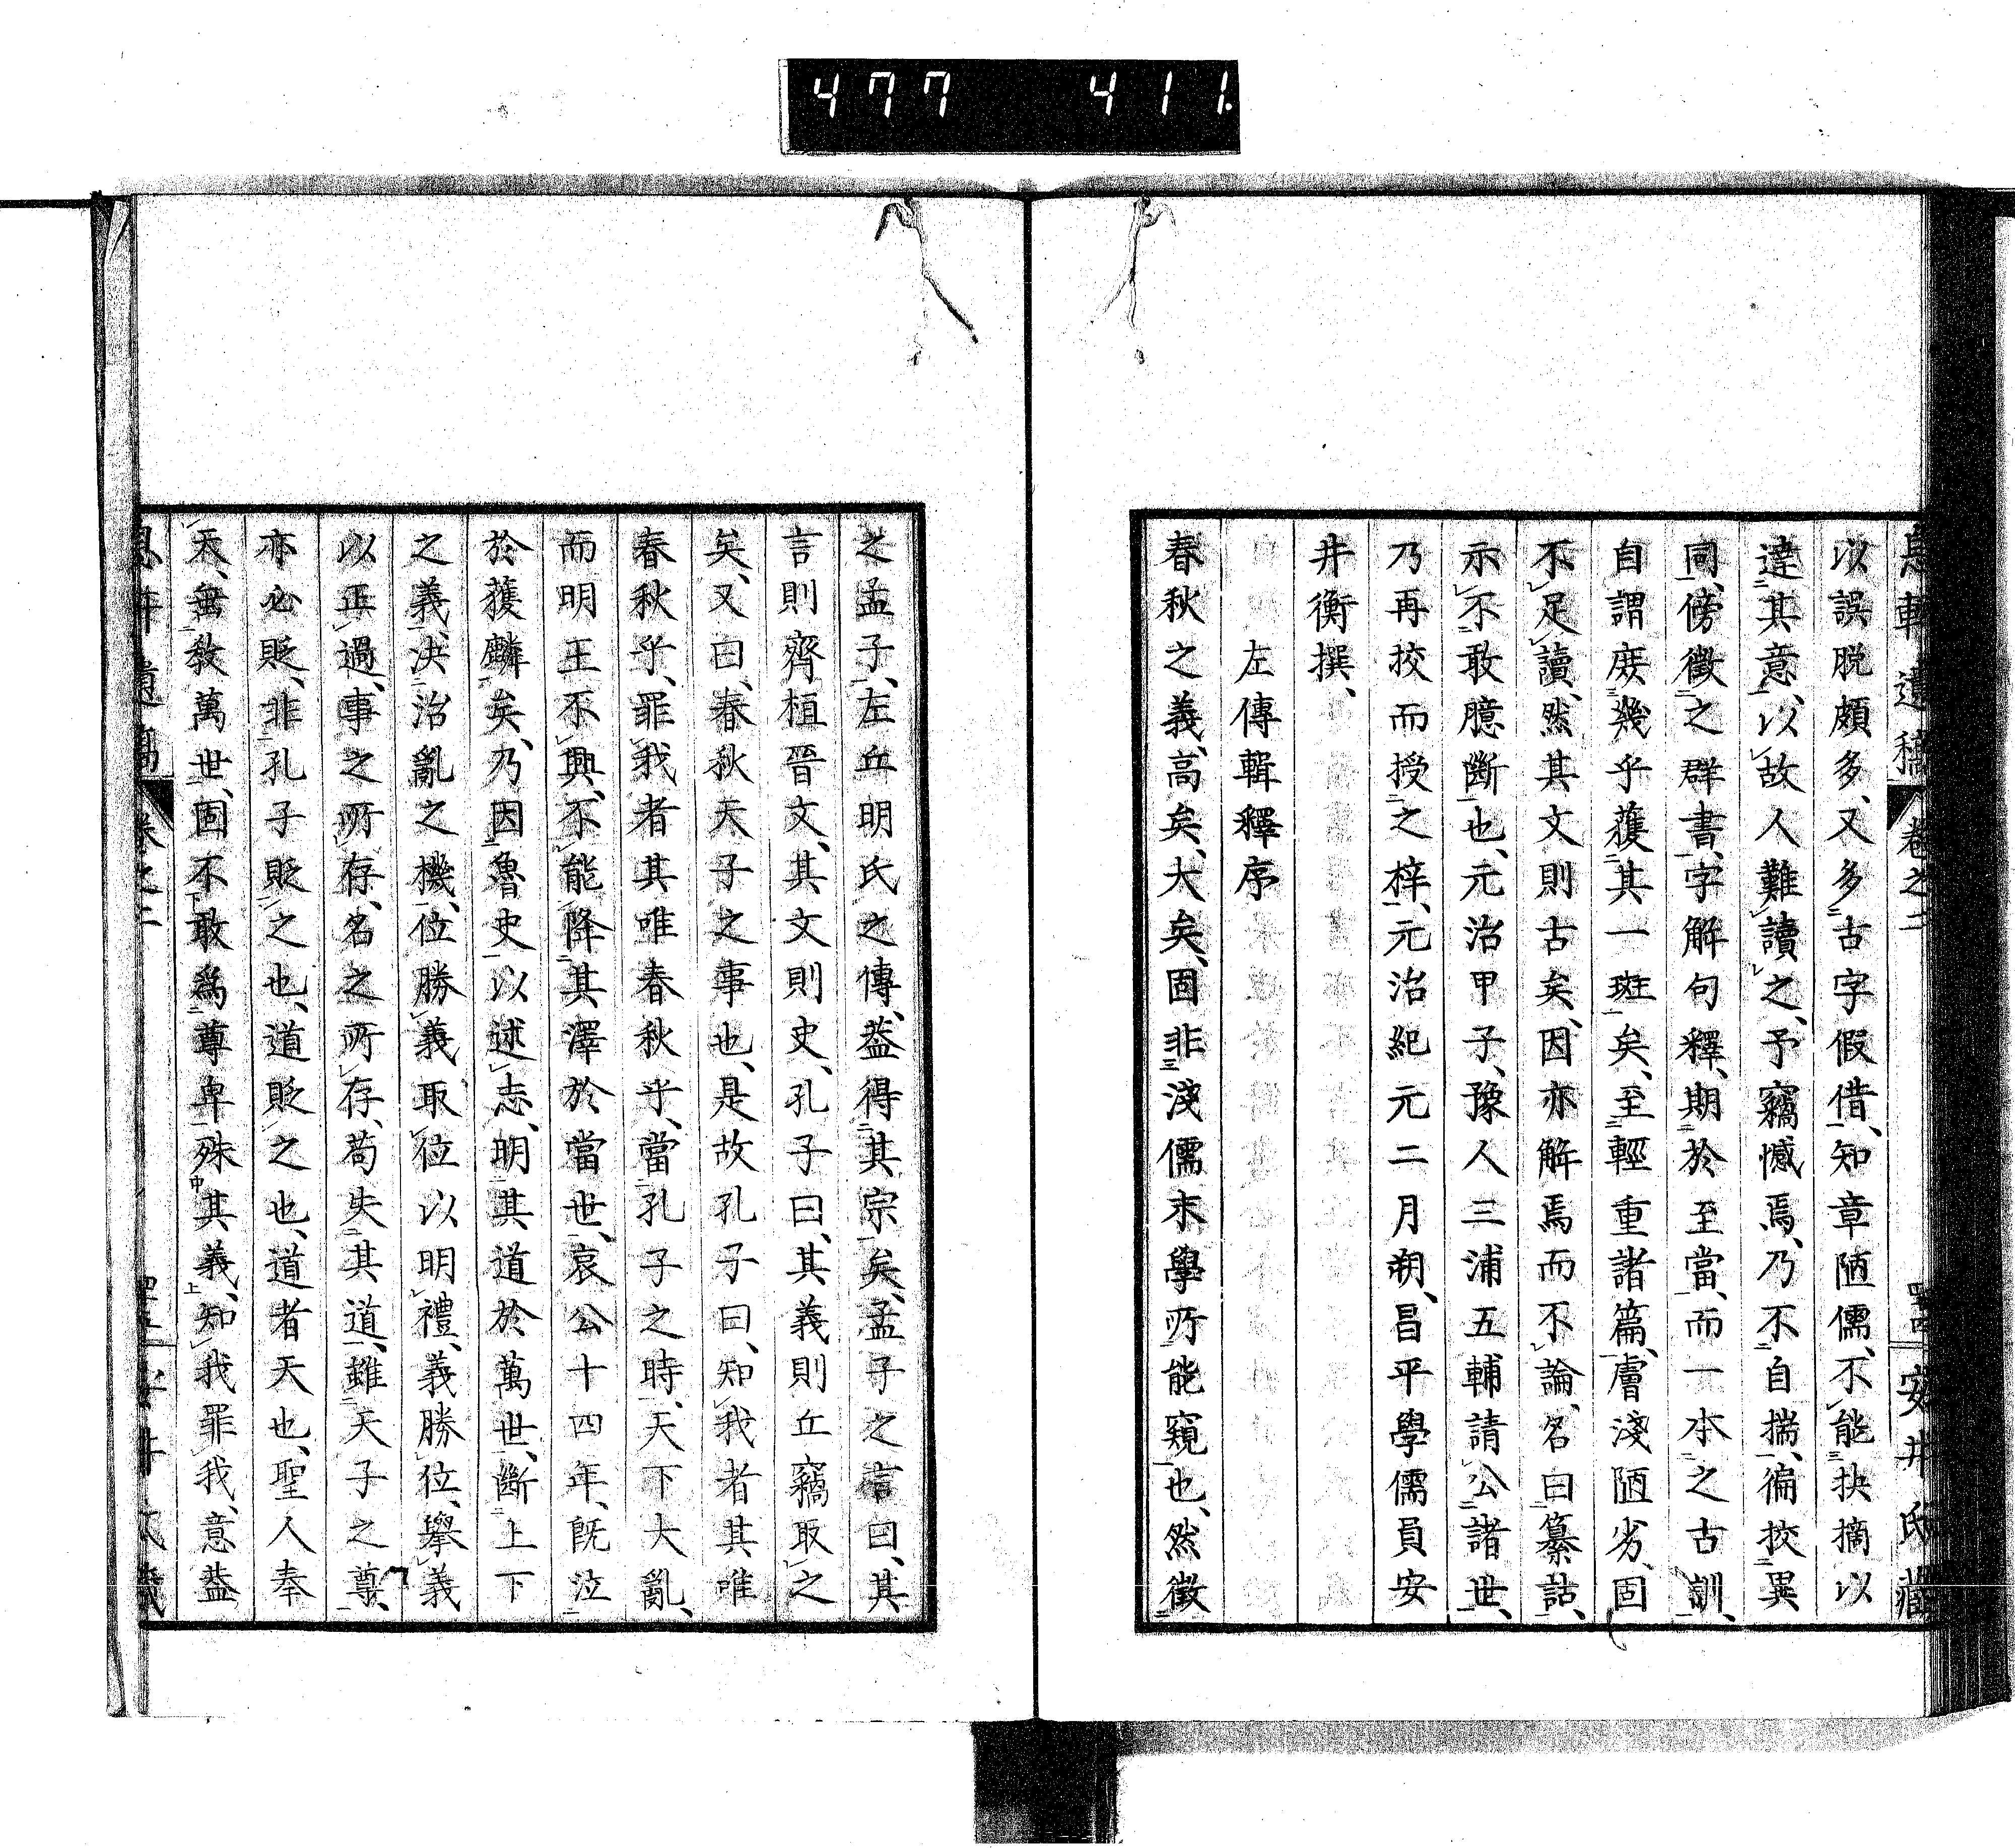 477 411
息軒遺稿 卷之二 四十四 安井氏藏
以誤脫頗多、又多古字假借、知章陋儒、不能抉摘以
達其意、以故人難讀之、予竊憾焉、乃不自揣、徧挍異
同、傍徵之群書、字解句釋、期於至當、而一本之古訓、
自謂庶幾乎獲其一斑矣、至輕重諸篇、膚淺陋劣、固
不足讀、然其文則古矣、因亦解焉而不論、名曰纂詁、
示不敢臆斷也、元治甲子、豫人三浦五輔請公諸世、
乃再挍而授之梓、元治紀元二月朔、昌平學儒員安
井衡撰、
左傳輯釋序
春秋之義、高矣、大矣、固非淺儒末學所能窺也、然徵
之孟子、左丘明氏之傳、蓋得其宗矣、孟子之言曰、其
言則齊桓晉文、其文則史、孔子曰、其義則丘竊取之
矣、又曰、春秋天子之事也、是故孔子曰、知我者其唯
春秋乎、罪我者其唯春秋乎、當孔子之時、天下大亂、
而明王不興、不能降其澤於當世、哀公十四年、既泣
於獲麟矣、乃因魯史以述志、明其道於萬世、斷上下
之義、決治亂之機、位勝義取位以明禮、義勝位、擧義
以正過、事之所存、名之所存、苟失其道、雖天子之尊、
亦必貶、非孔子貶之也、道貶之也、道者天也、聖人奉
天、無教萬世、固不敢爲尊卑殊其義、知我罪我、意益